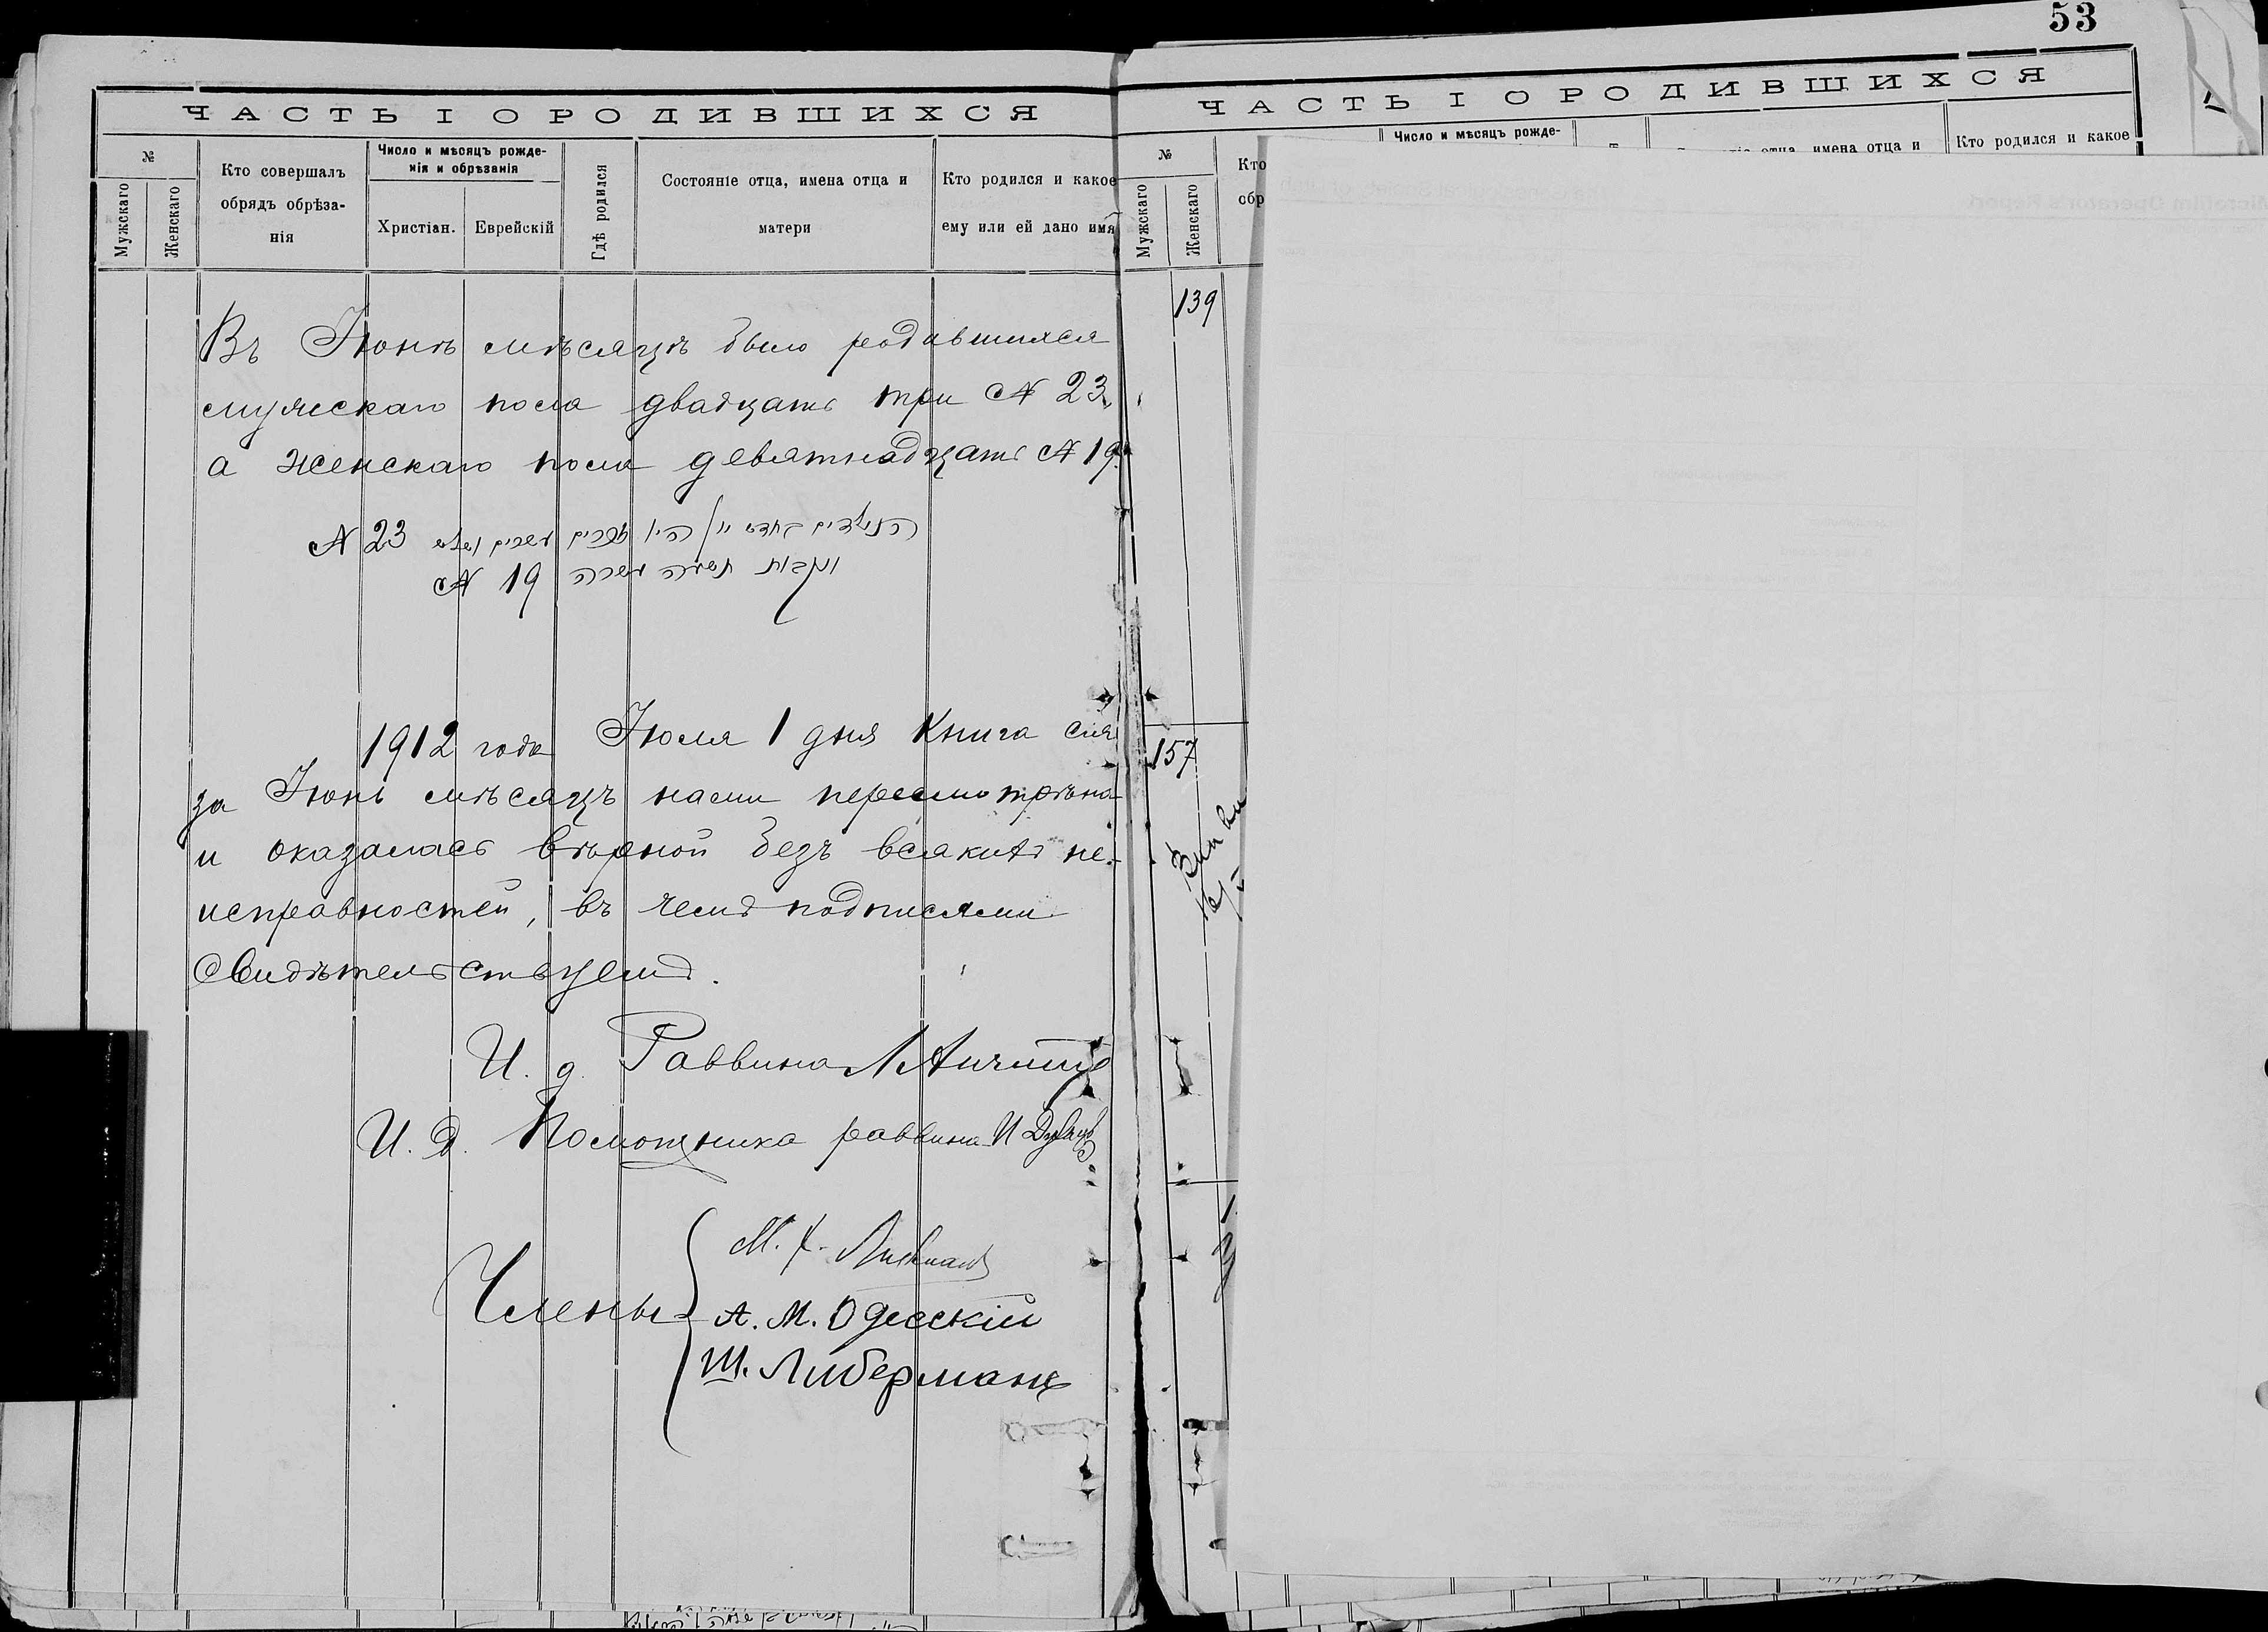 53
ЧАСТЬ I О РОДИВШИХСЯ
№
Мужскаго
Женскаго
Кто совершалъ обрядъ обрѣза-
нія
Число и мѣсяцъ рожде-
нія и обрѣзанія
Христіан.
Еврейскій
Гдѣ родился
Состояніе отца, имена отца и
матери
Кто родился и какое
ему или ей дано имя
Въ Іюнѣ мѣсяцѣ было родившихся
мужскаго пола двадцать три № 23
а женскаго пола девятнадцать № 19
№ 23 הנולדים בחדש יוני היו זכרים עשרים ושלש
№ 19 ונקבות תשעה עשרה
1912 года Іюля 1 дня Книга сія
за Іюнь мѣсяцъ нами пересмотрѣна
и оказалась вѣрной безъ всякихъ не-
исправностей, въ чемъ подписями
свидѣтельствуемъ.
И. д. Раввина
И. д. Помощника раввина И
Члены
М.
А. М. Одесскій
Ш. Либерманъ
ЧАСТЬ I О РОДИВШИХСЯ
№
Мужскаго
Женскаго
Кто
обр
Число и мѣсяцъ рожде-
отца, имена отца и
Кто родился и какое
139
157